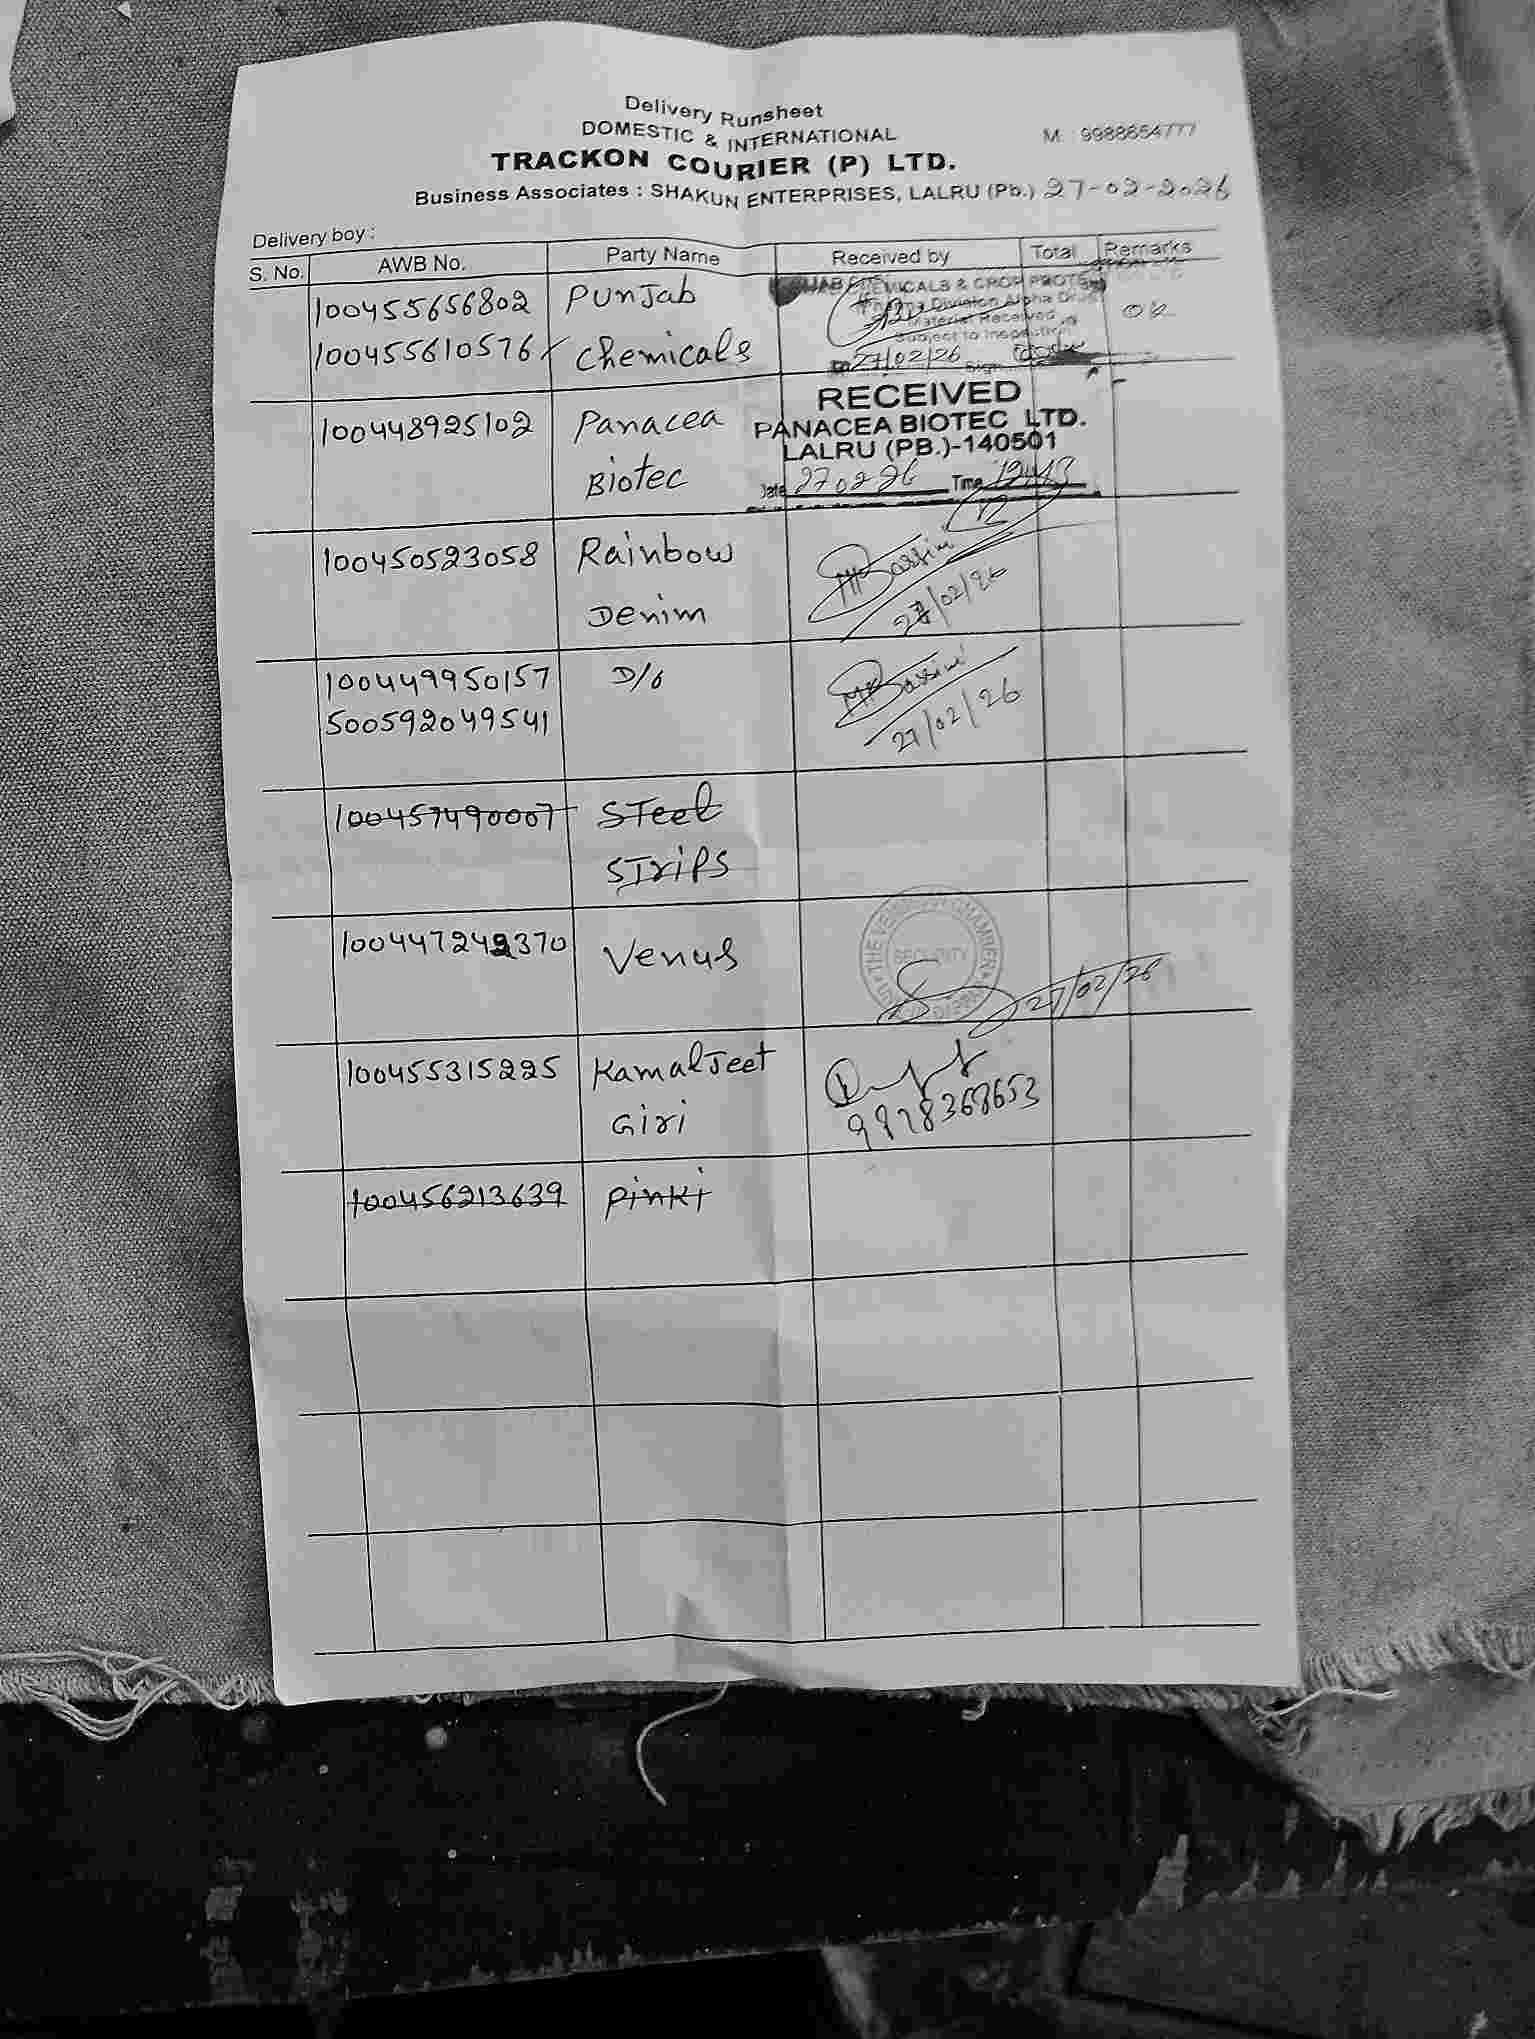 Delivery Runsheet
DOMESTIC & INTERNATIONAL
M. 9988654777
TRACKON COURIER (P) LTD.
Business Associates : SHAKUN ENTERPRISES, LALRU (Pb.) 27-02-2026
Delivery boy :
S. No. AWB No. Party Name Received by Total Remarks
100455656802 Punjab
CHEMICALS & CROP PROTE
Pharma Division Alpha Drug
Material Received
Subject to Inspection
OK
100455610576 Chemicals
27/02/26 Sign.
RECEIVED
100448925102 Panacea PANACEA BIOTEC LTD.
LALRU (PB.)-140501
Biotec Date 27 02 26 Time
100450523058 Rainbow
Denim 27/02/26
100449950157 D/o
500592049541 27/02/26
100457490007 Steel
Strips
100447242370 Venus
THE CHAMBER
SECURITY
27/02/26
100455315225 KamalJeet
Giri 9878368653
100456213639 Pinki